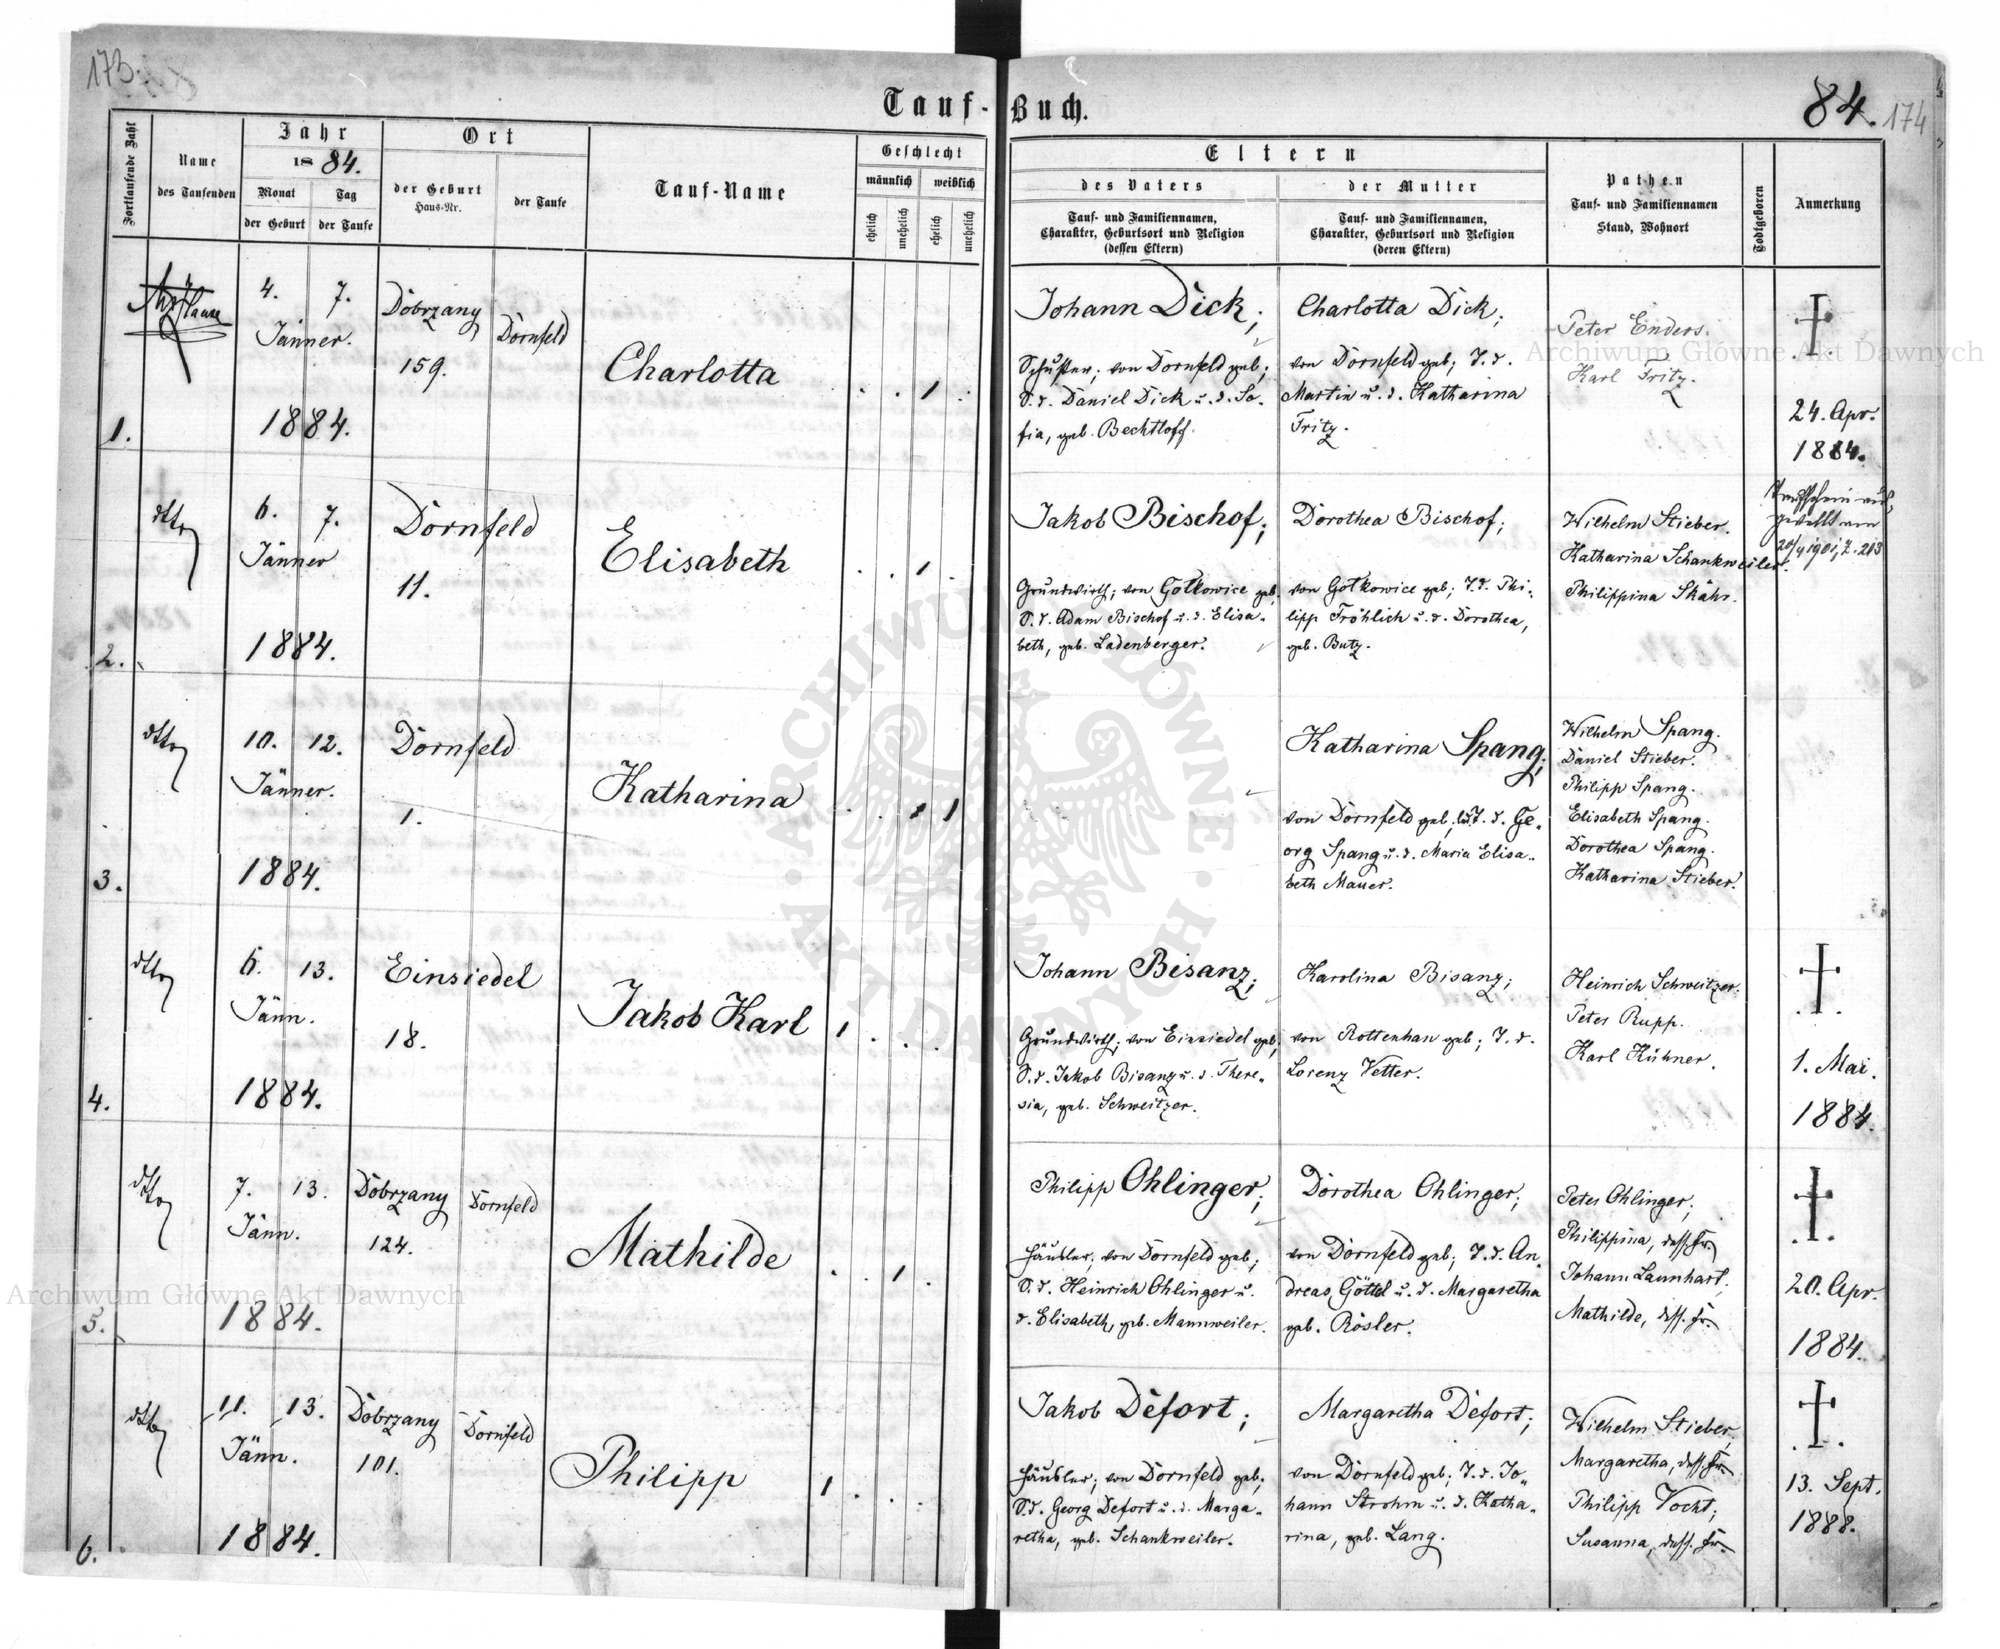 173.
Tauf-Buch.
84. 174
Fortlaufende Zahl
Name
des Taufenden
Jahr
18 84.
Monat
der Geburt
Tag
der Taufe
Ort
der Geburt
Haus-Nr.
der Taufe
Tauf-Name
Geschlecht
männlich weiblich
ehelich unehelich ehelich unehelich
Eltern
des Vaters
Tauf- und Familiennamen,
Charakter, Geburtsort und Religion
(dessen Eltern)
der Mutter
Tauf- und Familiennamen,
Charakter, Geburtsort und Religion
(deren Eltern)
Pathen
Tauf- und Familiennamen
Stand, Wohnort
Todtgeboren
Anmerkung
1.
4. 7.
Jänner.
1884.
Dobrzany
159.
Dornfeld
Charlotta
1
Johann Dick;
Schuster; von Dornfeld geb;
S. d. Daniel Dick u. d. So-
fia, geb. Bechtloff.
Charlotta Dick;
von Dornfeld geb; T. d.
Martin u. d. Katharina
Fritz.
Peter Enders.
Karl Fritz.
24. Apr.
1884.
2.
dtto
6. 7.
Jänner
1884.
Dornfeld
11.
Elisabeth
1
Jakob Bischof;
Grundwirth; von Gotkowice geb;
S. d. Adam Bischof u. d. Elisa-
beth, geb. Ladenberger.
Dorothea Bischof;
von Gotkowice geb; T. d. Phi-
lipp Fröhlich u. d. Dorothea,
geb. Butz.
Wilhelm Stieber.
Katharina Schankweiler.
Philippina Skähr.
Taufschein aus-
gestellt am
20/4 1901, Z. 213
3.
dtto
10. 12.
Jänner.
1884.
Dornfeld
1.
Katharina
1 1
Katharina Spang;
von Dornfeld geb; T. d. Ge-
org Spang u. d. Maria Elisa-
beth Mauer.
Wilhelm Spang.
Daniel Stieber.
Philipp Spang.
Elisabeth Spang.
Dorothea Spang.
Katharina Stieber.
4.
dtto
6. 13.
Jänn.
1884.
Einsiedel
18.
Jakob Karl
1
Johann Bisanz;
Grundwirth; von Einsiedel geb;
S. d. Jakob Bisanz u. d. There-
sia, geb. Schweitzer.
Karolina Bisanz;
von Rottenhan geb; T. d.
Lorenz Vetter.
Heinrich Schweitzer.
Peter Rupp.
Karl Kühner.
1. Mai.
1884.
5.
dtto
7. 13.
Jänn.
1884.
Dobrzany
124.
Dornfeld
Mathilde
1
Philipp Ohlinger;
Häusler; von Dornfeld geb;
S. d. Heinrich Ohlinger u.
d. Elisabeth, geb. Mannweiler.
Dorothea Ohlinger;
von Dornfeld geb; T. d. An-
dreas Göttel u. d. Margaretha
geb. Rösler.
Peter Ohlinger;
Philippina, dess. Fr.
Johann Launhart;
Mathilde, dess. Fr.
20. Apr.
1884.
6.
dtto
11. 13.
Jänn.
1884.
Dobrzany
101.
Dornfeld
Philipp
1
Jakob Defort;
Häusler; von Dornfeld geb;
S. d. Georg Defort u. d. Marga-
retha, geb. Schankweiler.
Margaretha Defort;
von Dornfeld geb; T. d. Jo-
hann Strohm u. d. Katha-
rina, geb. Lang.
Wilhelm Stieber;
Margaretha, dess. Fr.
Philipp Vocht;
Susanna, dess. Fr.
13. Sept.
1888.
Archiwum Główne Akt Dawnych
Archiwum Główne Akt Dawnych
ARCHIWUM GŁÓWNE AKT DAWNYCH